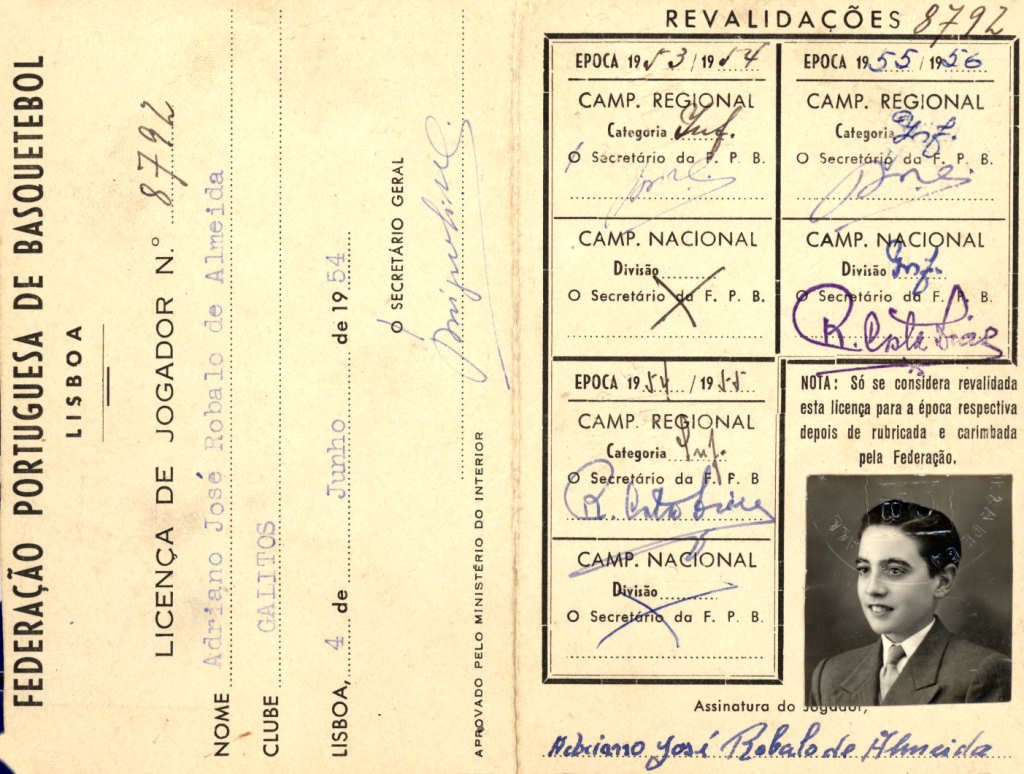 FEDERAÇÃO PORTUGUESA DE BASQUETEBOL
LISBOA
LICENÇA DE JOGADOR N.º 8792
NOME Adriano José Robalo de Almeida
CLUBE GALITOS
LISBOA, 4 de Junho de 1954
O SECRETÁRIO GERAL
APROVADO PELO MINISTÉRIO DO INTERIOR
REVALIDAÇÕES 8792
EPOCA 1953/1954
CAMP. REGIONAL
Categoria Inf.
O Secretário da F. P. B.
CAMP. NACIONAL
Divisão
O Secretário da F. P. B.
EPOCA 1954/1955
CAMP. REGIONAL
Categoria Inf.
O Secretário da F. P. B
R. Costa
CAMP. NACIONAL
Divisão
O Secretário da F. P. B.
EPOCA 1955/1956
CAMP. REGIONAL
Categoria Inf.
O Secretário da F. P. B.
CAMP. NACIONAL
Divisão Inf.
O Secretário da F. P. B.
R. Costa
NOTA: Só se considera revalidada
esta licença para a época respectiva
depois de rubricada e carimbada
pela Federação.
Assinatura do Jogador,
Adriano José Robalo de Almeida